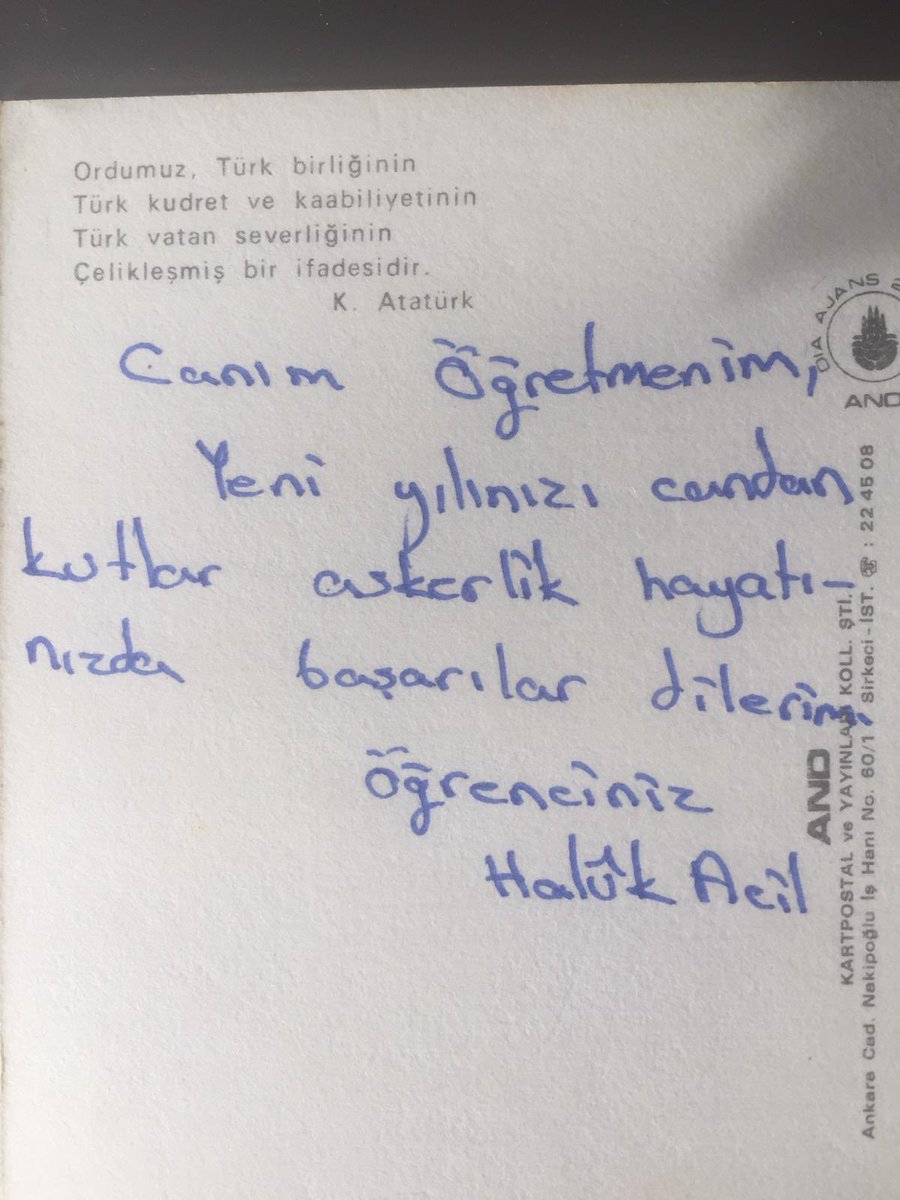 Ordumuz, Türk birliğinin
Türk kudret ve kaabiliyetinin
Türk vatan severliğinin
Çelikleşmiş bir ifadesidir.
K. Atatürk
Canım Öğretmenim,
Yeni yılınızı candan
kutlar askerlik hayatı-
nızda başarılar dilerim.
Öğrenciniz
Halûk Acil
DIA AJANS
AND
AND
KARTPOSTAL ve YAYINLARI KOLL. ŞTİ.
Ankara Cad. Nakipoğlu İş Hanı No. 60/1 Sirkeci-İST. ☎ : 22 45 08